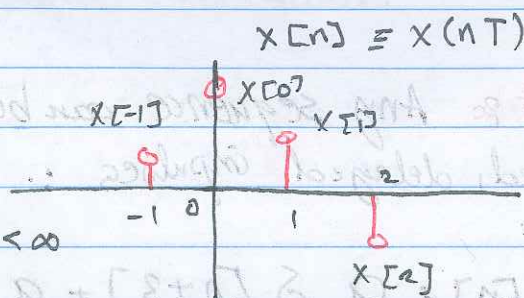 x[n] ≡ x(nT)
x[0]
x[-1]
x[1]
2
-1 0 1
< ∞
x[2]